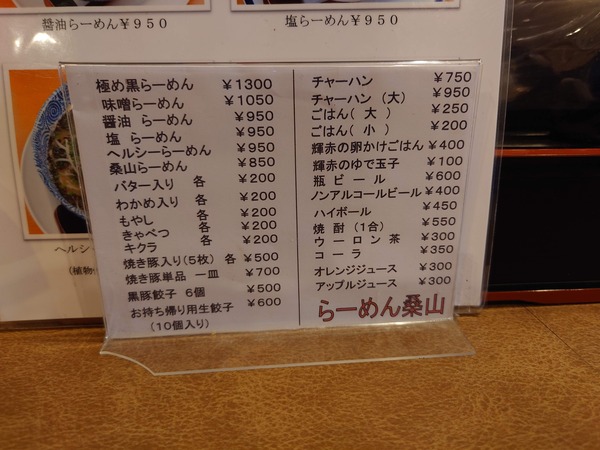 醤油らーめん¥950
塩らーめん¥950
極め黒らーめん ¥1300
味噌らーめん ¥1050
醤油 らーめん ¥950
塩 らーめん ¥950
ヘルシーらーめん ¥950
桑山らーめん ¥850
バター入り 各 ¥200
わかめ入り 各 ¥200
もやし 各 ¥200
きゃべつ 各 ¥200
キクラ
焼き豚入り(5枚) 各 ¥500
焼き豚単品 一皿 ¥700
黒豚餃子 6個 ¥500
お持ち帰り用生餃子 ¥600
(10個入り)
チャーハン ¥750
チャーハン (大) ¥950
ごはん( 大 ) ¥250
ごはん( 小 ) ¥200
輝赤の卵かけごはん ¥400
輝赤のゆで玉子 ¥100
瓶 ビール ¥600
ノンアルコールビール ¥400
ハイボール ¥450
焼 酎 (1合) ¥550
ウーロン 茶 ¥300
コーラ ¥350
オレンジジュース ¥300
アップルジュース ¥300
らーめん桑山
ヘルシ
(植物